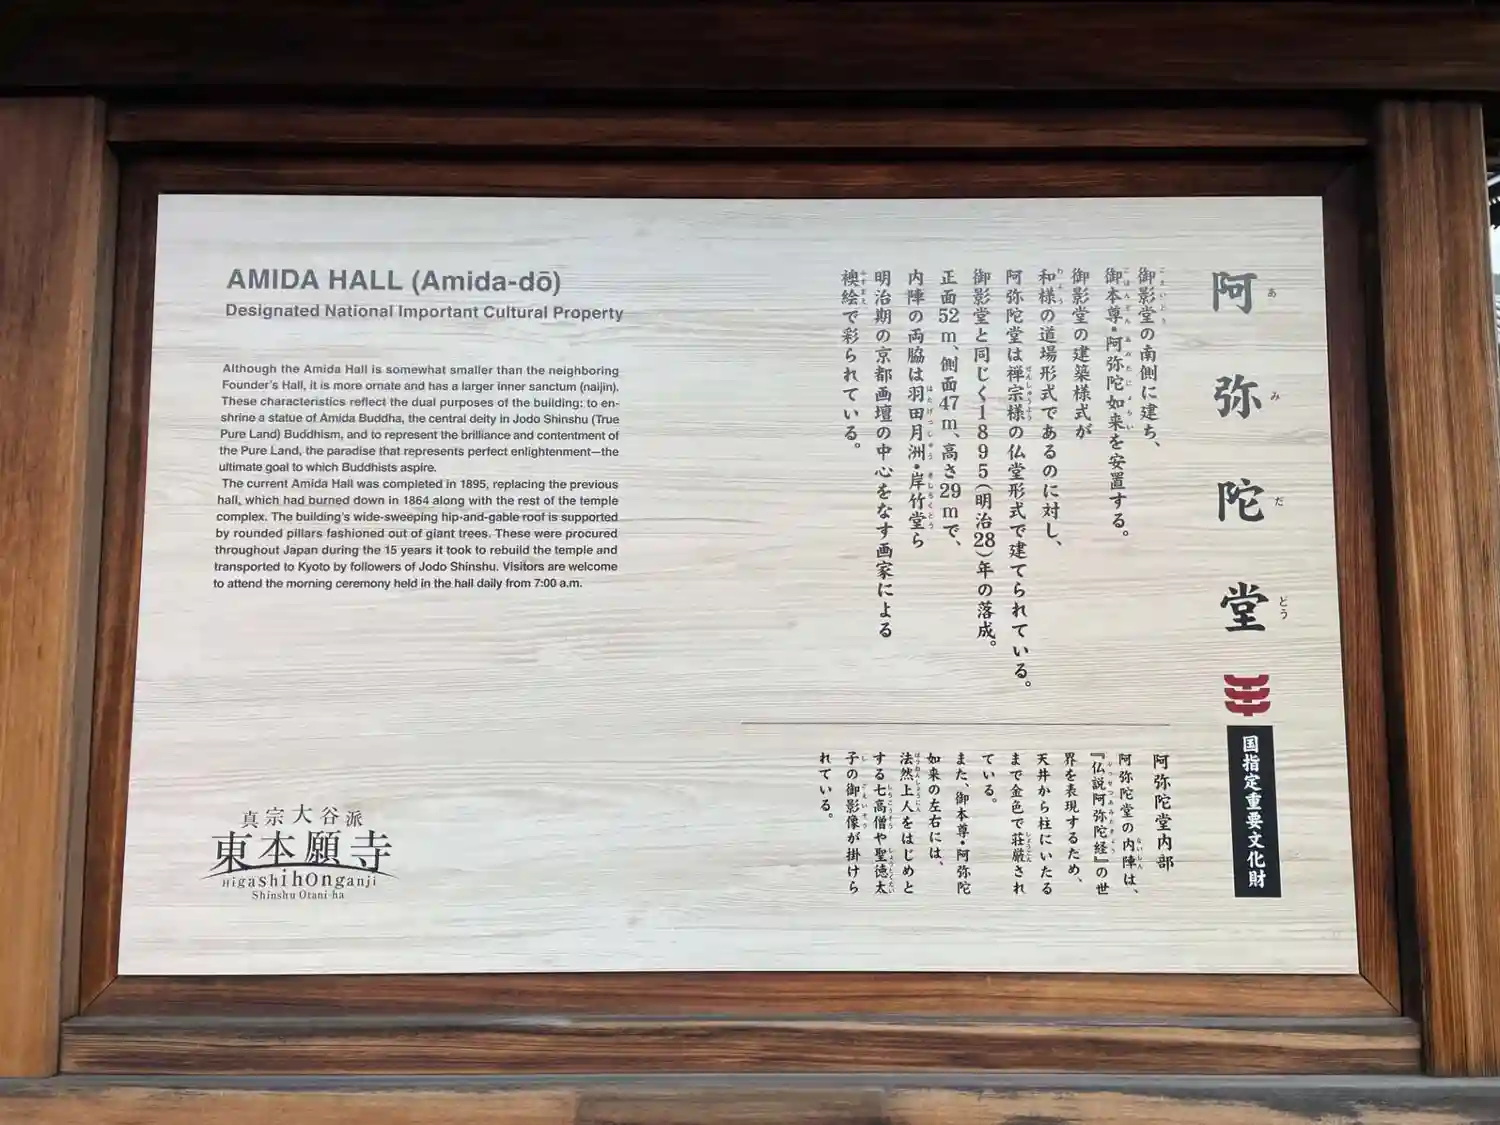 AMIDA HALL (Amida-dō)
Designated National Important Cultural Property
Although the Amida Hall is somewhat smaller than the neighboring
Founder's Hall, it is more ornate and has a larger inner sanctum (naijin).
These characteristics reflect the dual purposes of the building: to en-
shrine a statue of Amida Buddha, the central deity in Jodo Shinshu (True
Pure Land) Buddhism, and to represent the brilliance and contentment of
the Pure Land, the paradise that represents perfect enlightenment—the
ultimate goal to which Buddhists aspire.
The current Amida Hall was completed in 1895, replacing the previous
hall, which had burned down in 1864 along with the rest of the temple
complex. The building's wide-sweeping hip-and-gable roof is supported
by rounded pillars fashioned out of giant trees. These were procured
throughout Japan during the 15 years it took to rebuild the temple and
transported to Kyoto by followers of Jodo Shinshu. Visitors are welcome
to attend the morning ceremony held in the hall daily from 7:00 a.m.
真宗大谷派
東本願寺
Higashihonganji
Shinshu Otani-ha
阿弥陀堂
あみだどう
国指定重要文化財
御影堂の南側に建ち、
御本尊・阿弥陀如来を安置する。
御影堂の建築様式が
和様の道場形式であるのに対し、
阿弥陀堂は禅宗様の仏堂形式で建てられている。
御影堂と同じく1895(明治28)年の落成。
正面52m、側面47m、高さ29mで、
内陣の両脇は羽田月洲・岸竹堂ら
明治期の京都画壇の中心をなす画家による
襖絵で彩られている。
阿弥陀堂内部
阿弥陀堂の内陣は、
『仏説阿弥陀経』の世
界を表現するため、
天井から柱にいたる
まで金色で荘厳され
ている。
また、御本尊・阿弥陀
如来の左右には、
法然上人をはじめと
する七高僧や聖徳太
子の御影像が掛けら
れている。